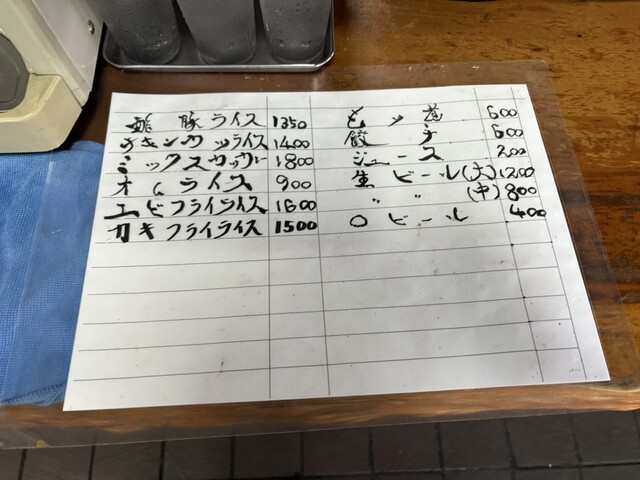 酢豚ライス 1350
チキンカツライス 1400
ミックス 1800
オムライス 900
エビフライライス 1600
カキフライライス 1500
600
餃子 600
ジュース 200
生ビール(大) 1200
〃 〃 (中) 800
〇ビール 400